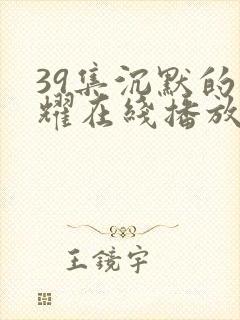 39集沉默的
耀在线播放
王镜宇